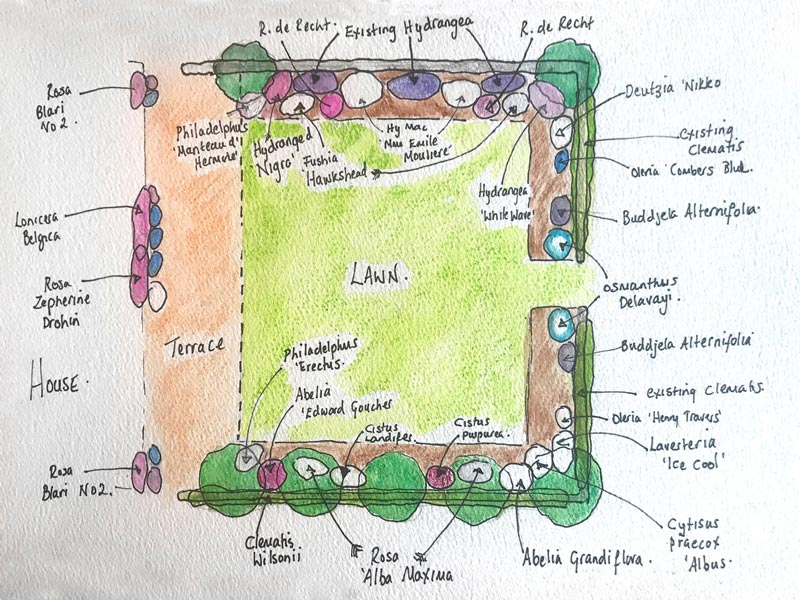 R. de Recht.
Existing Hydrangea
R. de Recht
Rosa
Blari
No 2.
Philadelphus
'Manteau d'
Hermine'
Hydranged
'Nigra'
Fushia
'Hawkshead'
Hy Mac
'Mme Emile
Mouliere'
Hydrangea
'White Wave'
Deutzia 'Nikko
Existing
Clematis
Oleria 'Combers Blue.
Buddjela Alternifolia.
Osmanthus
Delavayi.
Buddjela Alternifolia
existing Clematis.
Oleria 'Henry Travers'
Lavesteria
'Ice Cool'
Cytisus
praecox
'Albus.
Lonicera
Belgica
Rosa
Zepherine
Drohin
HOUSE.
Terrace
LAWN.
Philadelphus
'Erectus.
Abelia
'Edward Goucher
Cistus
Landifes.
Cistus
purpurea.
Rosa
Blari No2.
Clematis
Wilsonii
Rosa
'Alba Maxima
Abelia Grandiflora.